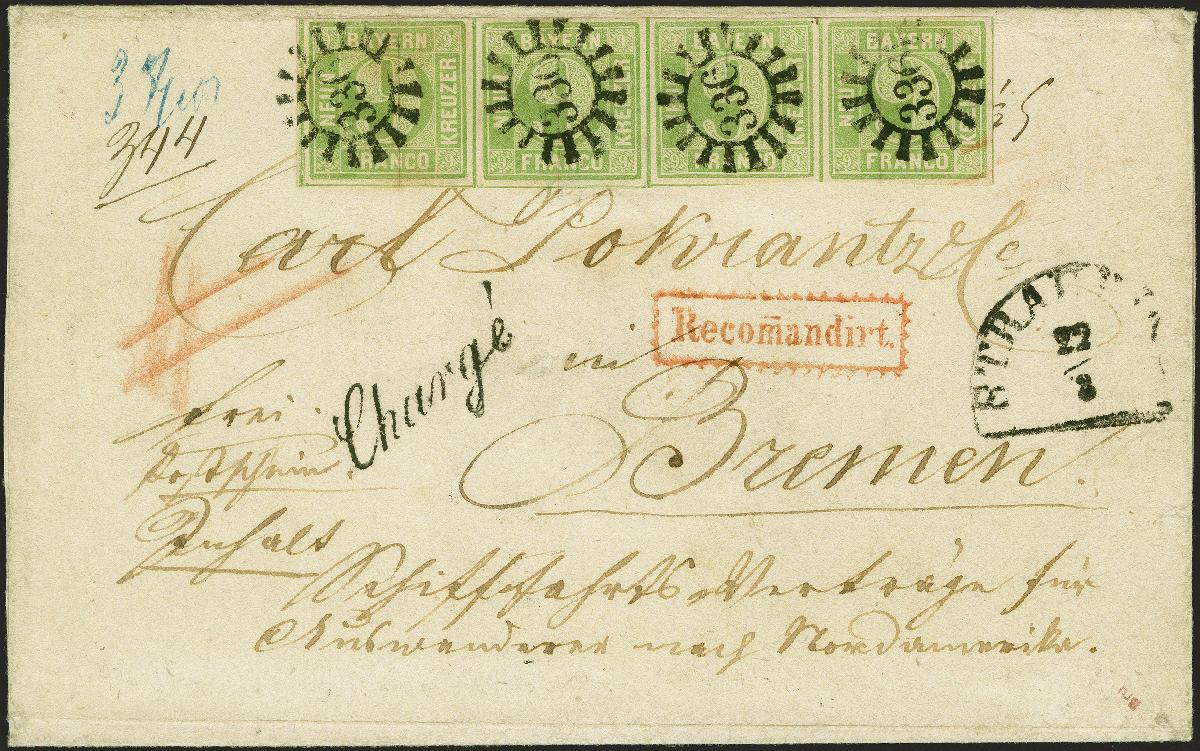 BAYERN BAYERN BAYERN BAYERN
NEUN KREUZER KREUZER KREUZER
FRANCO FRANCO FRANCO FRANCO
336 336 336 336
3
344
Carl Pokrantz & Co
Recomandirt.
Chargé
in
STRAU
22
8
frei.
Postschein.
Bremen.
Inhalt
Schiffahrts Verträge für
Auswanderer nach Nordamerika.